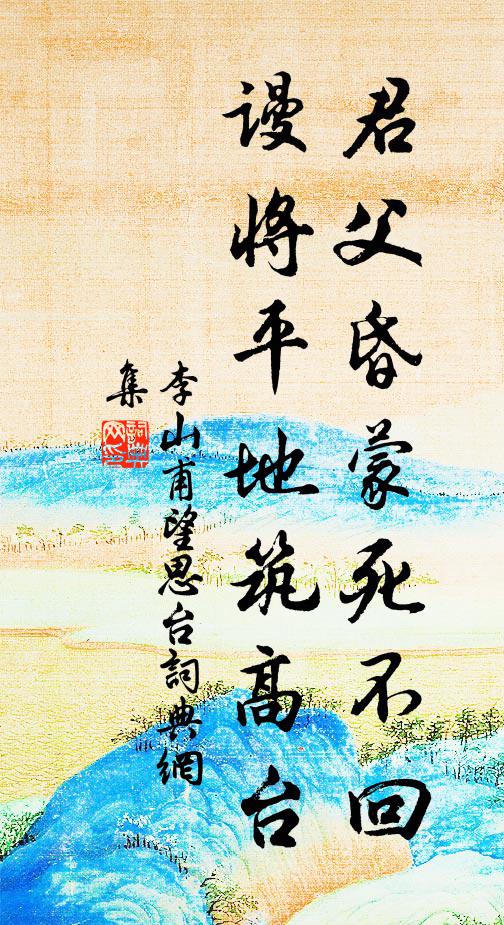 君父昏蒙死不回
谩将平地筑高台
李山甫望思台詞典網
集